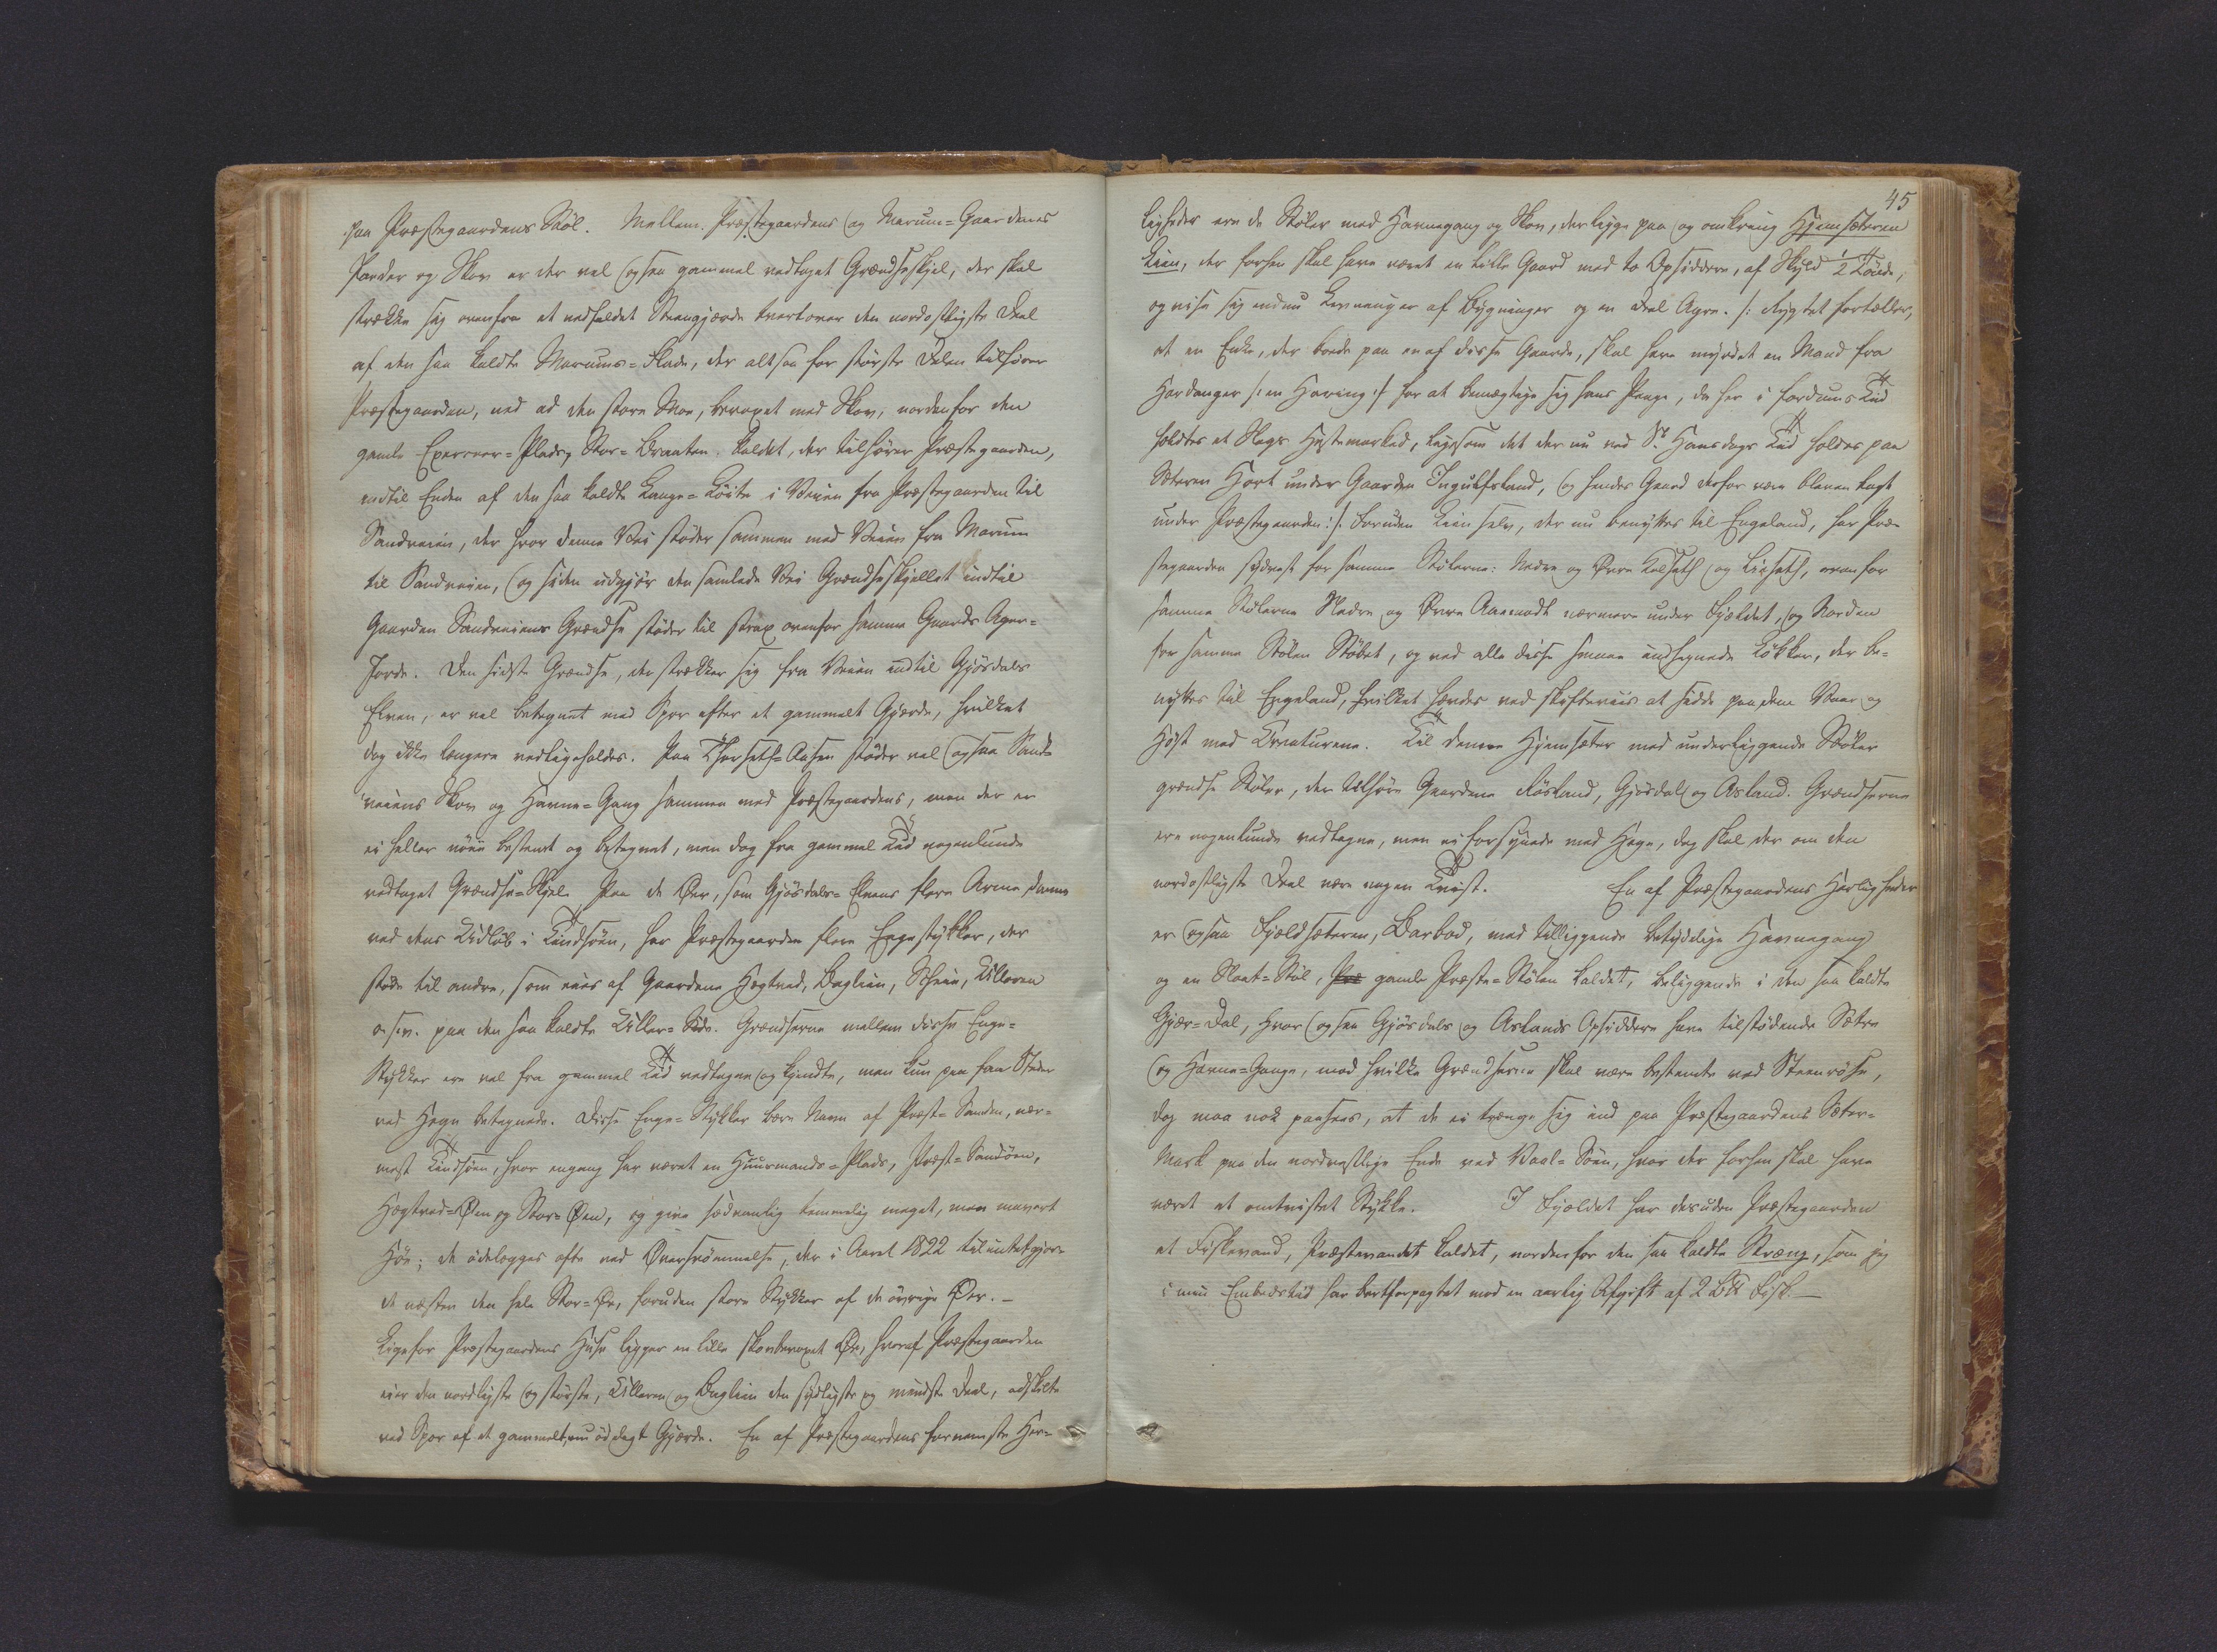 paa Præstegaardens Støl. Mellem Præstegaardens og Marum=Gaardenes
Jorder og Skov er der vel ogsaa gammel vedtaget Grændseskjel, der skal
strække sig ovenfra et nedfaldet Steengjærde tvertover den nordostligste Deel
af den saa kaldte Marums=Slaade, der altsaa for største Delen tilhører
Præstegaarden, ned ad den store Moe, bevoxet med Skov, nordenfor den
gamle Exerceer=Plads, Stor=Braaten kaldet, der tilhører Præstegaarden,
indtil Enden af den saa kaldte Lange=Løite i Veien fra Præstegaarden til
Sandveien, der hvor denne Vei støder sammen med Veien fra Marum
til Sandveien, og siden udgjør den samlede Vei Grændseskjellet indtil
Gaarden Sandveiens Grændse støder til strax ovenfor samme Gaards Ager=
Jorde. Den sidste Grændse, der strækker sig fra Veien indtil Gjøsdals
Elven, er vel betegnet med Spor efter et gammelt Gjærde, hvilket
dog ikke længere vedligeholdes. Paa Thorseth=Aasen støder vel ogsaa Sand=
veiens Skov og Havne=Gang sammen med Præstegaardens, men der er
ei heller nøie bestemt og betegnet, men dog fra gammel Tid nogenlunde
vedtaget Grændse=Skjel. Paa de Øer, som Gjøsdals=Elvens flere Arme danne
ved dens Udløb i Tindsøen, har Præstegaarden flere Engestykker, der
støde til andre, som eies af Gaardene Hægtved, Bøglien, Skeie, Ulleren
o. s. v. paa den saa kaldte Uller=Øde. Grændserne mellem disse Enge=
Stykker ere vel fra gammel Tid vedtagne og kjendte, men kun paa faa Steder
ved Hegn betegnede. Disse Enge=Stykker bære Navn af Præst=Sanden, nær=
mest Tindsøen, hvor engang har været en Huusmands=Plads, Præst=Sandøen,
Hægtved=Øen og Stor=Øen, og give sædvanlig temmelig meget, men mavert
Høe; de ødelægges ofte ved Oversvømmelse, der i Aaret 1822 tilintetgjor=
de næsten den hele Stor=Øe, foruden store Stykker af de øvrige Øer. –
Lige for Præstegaardens Huse ligger en lille skovbevoxet Øe, hvoraf Præstegaarden
eier den nordligste og største, Ulleren og Bøglien den sydligste og mindste Deel, adskilte
ved Spor af et gammelt, nu ødelagt Gjærde. En af Præstegaardens fornemste Her=
45
ligheder ere de Støler med Havnegang og Skov, der ligge paa og omkring Hjemsæteren
Lien, der forhen skal have været en lille Gaard med to Opsiddere, af Skyld 1/2 Tønde,
og vise sig endnu Levninger af Bygninger og en Deel Agre. /: Rygtet fortæller,
at en Enke, der boede paa en af disse Gaarde, skal have myrdet en Mand fra
Hardanger /: en Haring :/ for at bemægtige sig hans Penge, da her i fordums Tid
holdtes et Slags Hestemarked, ligesom det der nu ved St Hansdags Tid holdes paa
Sæteren Hort under Gaarden Ingulfsland, og hendes Gaard derfor være bleven lagt
under Præstegaarden :/. Foruden Lien selv, der nu benyttes til Engeland, har Præ=
stegaarden sydvest for samme Stølerne: Nedre og Øvre Kalseth og Lieseth, ovenfor
samme Stølerne Nedre og Øvre Aamodt nærmere under Fjældet, og Norden
for samme Stølen Støbet, og ved alle disse smaae indhegnede Løkker, der be=
nyttes til Engeland, hvilket hævdes ved skifteviis at sidde paa dem Vaar og
Høst med Creaturene. Til denne Hjemsæter med underliggende Støler
grændse Støler, der tilhøre Gaardene Røsland, Gjøsdal og Asland. Grændserne
ere nogenlunde vedtagne, men ei forsynede med Hegn, dog skal der om den
nordostligste Deel være nogen Tvist. En af Præstegaardens Herligheder
er ogsaa Fjeldsæteren, Barbod, med tilliggende betydelige Havnegang
og en Slaat=Støl, gamle Præste=Stølen kaldet, beliggende i den saa kaldte
Gjær=Dal, hvor ogsaa Gjøsdals og Aslands Opsiddere have tilstødende Sætre
og Havne=Gange, mod hvilke Grændserne skal være bestemte ved Steenrøse,
dog maa nok paasees, at de ei trænge sig ind paa Præstegaardens Sæter=
Mark paa den nordvestlige Ende ved Vaal=Søen, hvor der forhen skal have
været et omtvistet Stykke. I Fjældet har desuden Præstegaarden
et Fiskevand, Præstevandet kaldet, nordenfor den saa kaldte Skræng, som jeg
i min Embedstid har bortforpagtet mod en aarlig Afgift af 2 B℔ Fisk. –